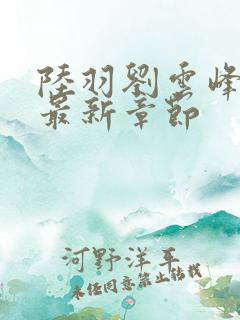 陸羽劉雲峰
最新章節
河野洋平
未经同意禁止转载